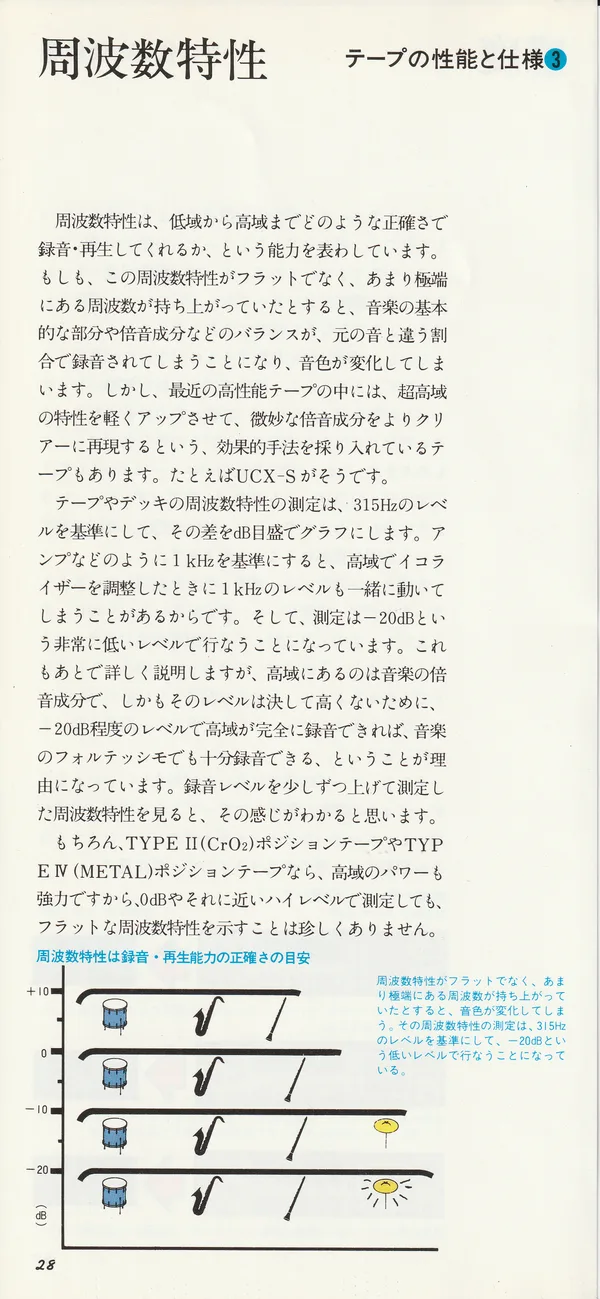 周波数特性
テープの性能と仕様3
周波数特性は、低域から高域までどのような正確さで
録音・再生してくれるか、という能力を表わしています。
もしも、この周波数特性がフラットでなく、あまり極端
にある周波数が持ち上がっていたとすると、音楽の基本
的な部分や倍音成分などのバランスが、元の音と違う割
合で録音されてしまうことになり、音色が変化してしま
います。しかし、最近の高性能テープの中には、超高域
の特性を軽くアップさせて、微妙な倍音成分をよりクリ
アーに再現するという、効果的手法を採り入れているテ
ープもあります。たとえばUCX-Sがそうです。
テープやデッキの周波数特性の測定は、315Hzのレベ
ルを基準にして、その差をdB目盛でグラフにします。ア
ンプなどのように1kHzを基準にすると、高域でイコラ
イザーを調整したときに1kHzのレベルも一緒に動いて
しまうことがあるからです。そして、測定は−20dBとい
う非常に低いレベルで行なうことになっています。これ
もあとで詳しく説明しますが、高域にあるのは音楽の倍
音成分で、しかもそのレベルは決して高くないために、
−20dB程度のレベルで高域が完全に録音できれば、音楽
のフォルテッシモでも十分録音できる、ということが理
由になっています。録音レベルを少しずつ上げて測定し
た周波数特性を見ると、その感じがわかると思います。
もちろん、TYPE II(CrO₂)ポジションテープやTYP
E IV (METAL)ポジションテープなら、高域のパワーも
強力ですから、0dBやそれに近いハイレベルで測定しても、
フラットな周波数特性を示すことは珍しくありません。
周波数特性は録音・再生能力の正確さの目安
周波数特性がフラットでなく、あま
り極端にある周波数が持ち上がって
いたとすると、音色が変化してしま
う。その周波数特性の測定は、315Hz
のレベルを基準にして、−20dBとい
う低いレベルで行なうことになって
いる。
+10
0
−10
−20
(dB)
28